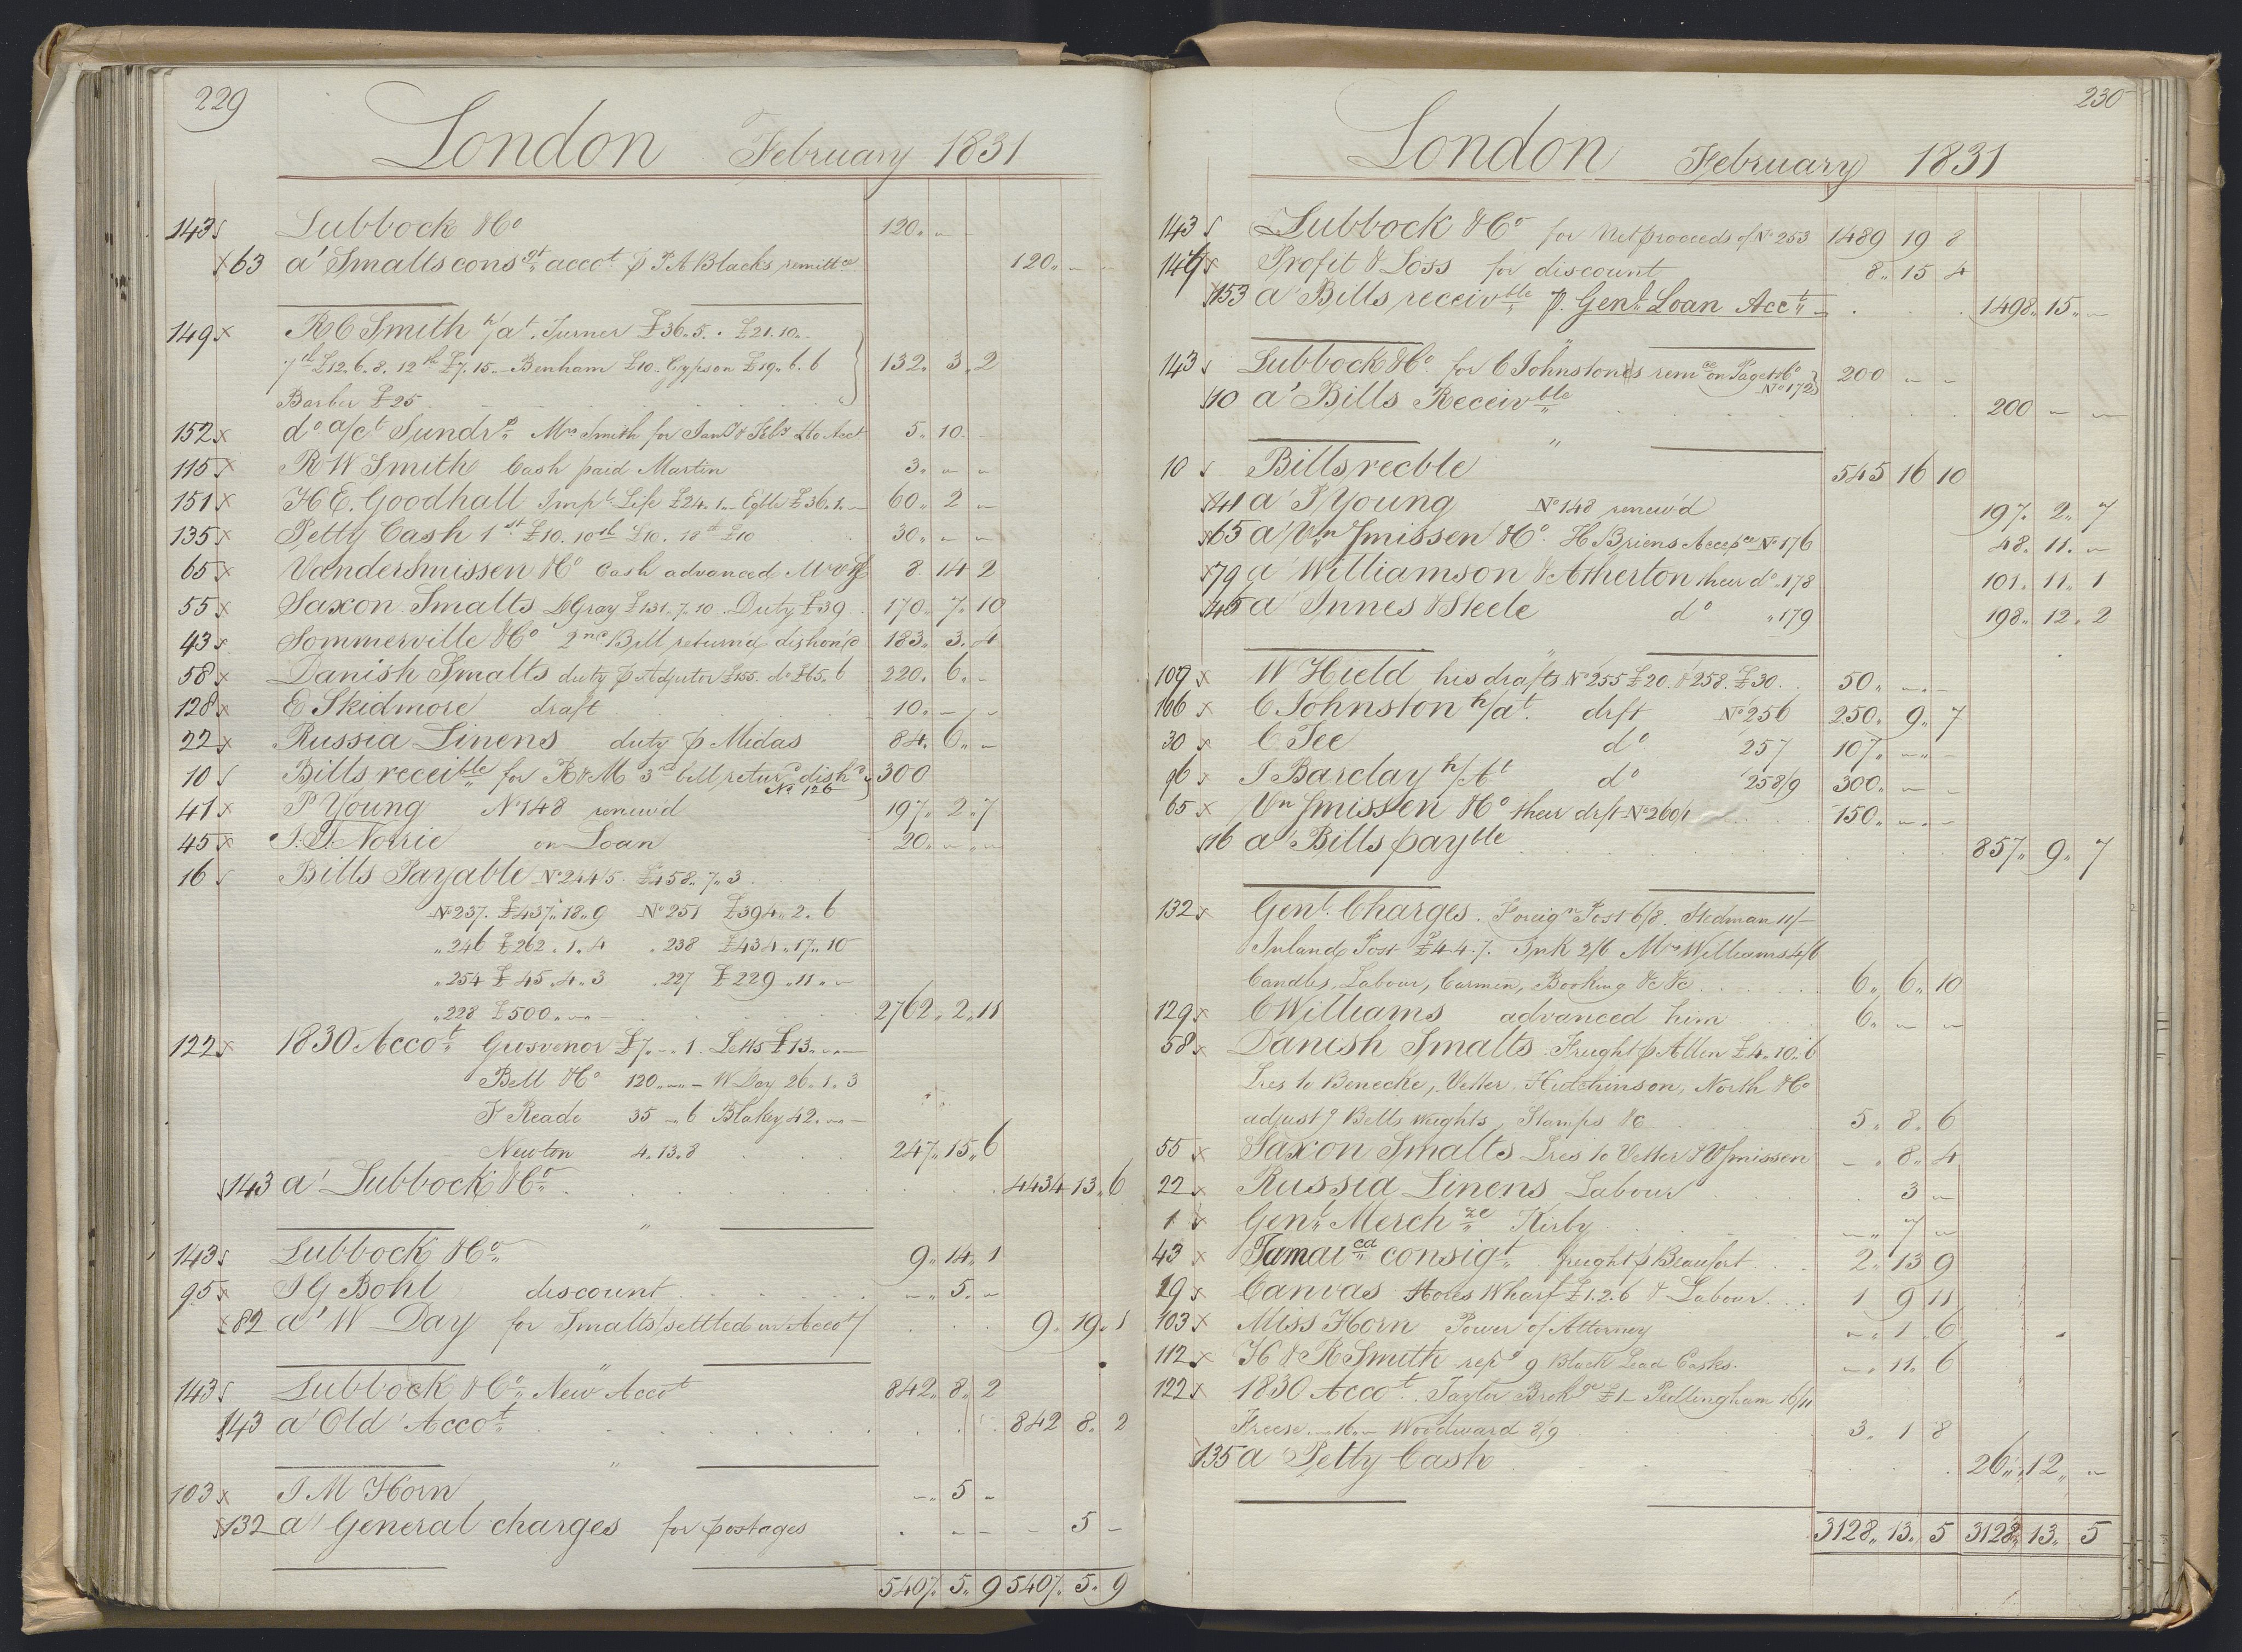 229
London February 1831
143 Lubbock & Co 120 " -
63 a' Smalts consgt accot p P A Blacks remittce 120 " - -
149 x R C Smith h/at Turner £36.5. . £21.10.
7th £12.6.8. 12th £7.15. - Benham £10. Gypson £19.6.6 132. 3. 2
Barber £25
152 x do a/ct Sundrs Mrs Smith for Jany & Feby Acct 5. 10. -
115 x R W Smith Cash paid Martin 3. " "
151 x H E. Goodhall Impl Life £24.1.- Egble £36.1.- 60. 2 -
135 x Petty Cash 1st £10. 10th £10. 18th £10 30. - -
65 x Vandersmissen & Co Cash advanced 8. 14 2
55 x Saxon Smalts DGray £131.7.10. Duty £39 170. 7. 10
43 x Sommerville & Co 2nd Bill returnd dishon'd 183. 3. 4
58 x Danish Smalts duty p Adjutor £155. do £65.6 220. 6. -
128 x E Skidmore draft 10. - -
22 x Russia Linens duty p Midas 84. 6. -
10 Bills receible for R & M 3rd bill returd dishd No 126 300
41 x P Young No 148 renewd 197. 2. 7
45 x J. J. Norrie on Loan 20. - -
16 Bills Payable No 244/5. £458.7.3
No 237. £437.18.9 No 251 £394.2.6
" 246 £262.1.4 . 238 £434.17.10
" 254 £45.4.3 . 227 £229.11.-
" 228 £500.-.- 2762. 2. 11
122 x 1830 Accot Gusvenor £7.-.1. Letts £13.-.-
Bell & Co 120.-.- W Day 26.1.3
F Reade 35 - 6 Blakey 42.-.-
Newton 4.13.8 247. 15. 6
143 a' Lubbock & Co 4434 13. 6
143 Lubbock & Co 9. 14. 1
95 x J G Bohl discount - . 5. -
82 a' W Day for Smalts settled in Accot 9. 19. 1
143 Lubbock & Co New Accot 842. 8. 2
143 a' Old Accot 842 8. 2
103 x J M Horn - . 5 -
132 a' General charges for postages - 5 -
5407. 5. 9 5407. 5. 9
230
London February 1831
143 Lubbock & Co for Net proceeds of No 253 1489 19 8
149 x Profit & Loss for discount 8. 15 4
153 a' Bills receivble p. Genl Loan Acct 1498. 15. -
143 Lubbock & Co for C Johnstons remce on Paget & Co No 172 200 - -
10 a' Bills Receivble 200 - -
10 Bills recble 545 16 10
41 a' P Young No 148 renew'd 197. 2. 7
65 a' Vn Smissen & Co. H Briens Accepce No 176 48. 11. -
79 a' Williamson & Atherton their do . 178 101. 11. 1
45 a' Innes & Steele do " 179 198. 12. 2
109 x W Hield his drafts No 255 £20. & 258. £30. 50. - -
166 x C Johnston h/at. drft No 256 250. 9. 7
30 x C Tee do 257 107. - -
96 J Barclay h/At do 258/9 300. - -
65 x Vn Smissen & Co their drft No 260/1 150. - -
16 a' Bills payble 857. 9. 7
132 x Genl. Charges. Foreign Post 6/8. Stedman 11/-
Inland Post £4.4.7. Ink 2/6 Mrs Williams 4/6
Candles, Labour, Carmen, Booking &c &c 6. 6. 10
129 x C Williams advanced him 6. - -
58 x Danish Smalts. Freight p Allen £4.10.6
Lres to Benecke, Vetter, Hutchinson, North & Co
adjustg Bells weights, Stamps &c 5. 8. 6
55 x Saxon Smalts Lres to Vetter & VSmissen - . 8. 4
22 x Russia Linens Labour 3 -
1 x Genl Merchze Kirby - . 7 -
43 x Jamaica consigt freight p Beaufort 2. 13 9
19 x Canvas Hores Wharf £1.2.6 & Labour 1 9 11
103 x Miss Horn Power of Attorney - . 1. 6
112 x H & R Smith repg 9 Black Lead Casks. - . 11. 6
122 x 1830 Accot. Taylor Brokge £1 - Pedlingham 16/11
Freese - 16. - Woodward 8/9 3. 1 8
135 a Petty Cash 26. 12. -
3128. 13. 5 3128. 13. 5